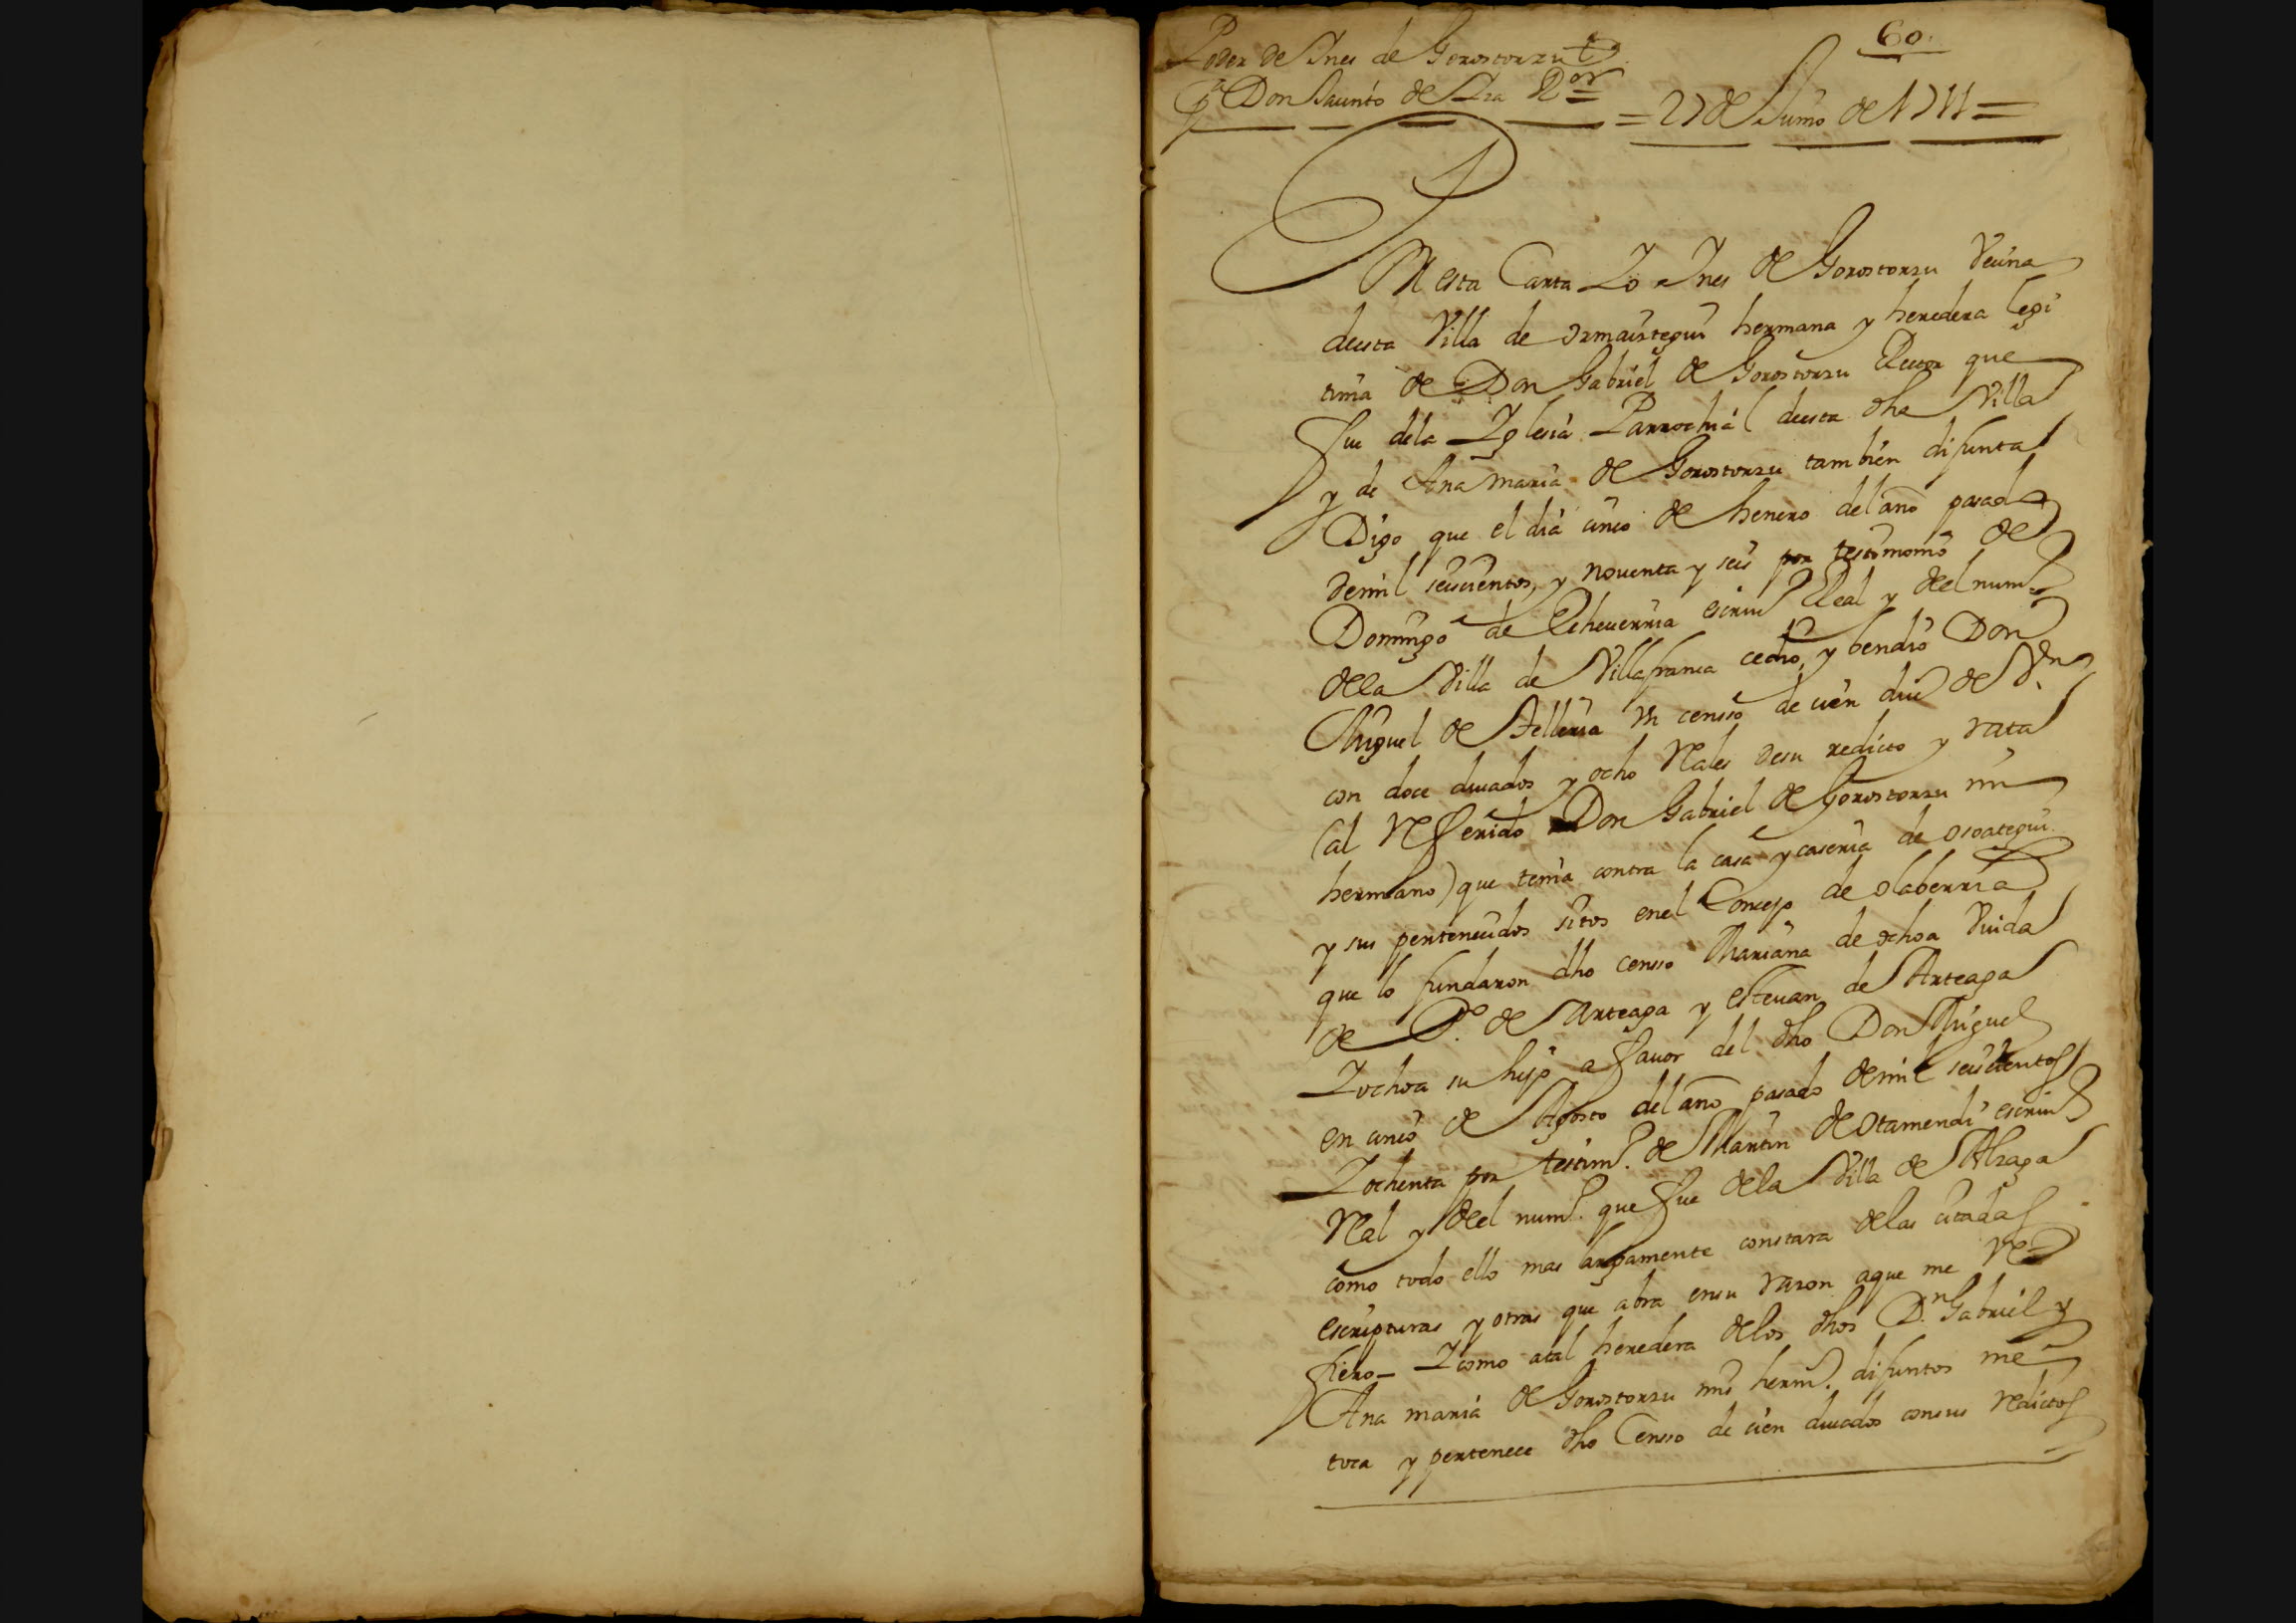 Poder de Ines de Gorostorzu
pa Don Jacinto de Lza Ror
60
= 27 de Junio de 1711 =
En esta Carta Yo Ines de Gorostorzu Vecina
de esta Villa de ormaiztegui hermana y heredera legi
tima de Don Gabriel de Gorostorzu Rector que
fue dela Yglesia Parrochial de esta dha Villa
y de Ana maria de Gorostorzu tambien difunta
Digo que el dia cinco de henero del año pasado
demil seiscientos, y noventa y seis por testimonio de
Domingo de Echeuerria escriu Real y del num
dela Villa de Villafranca cedio, y bendio Don
Miguel de Telleria Vn censso de cien duc de Vn
con doce ducados y ocho Rales desu redicto y rata
(al Refferido Don Gabriel de Gorostorzu mi
hermano) que tenia contra la casa y caseria de osoategui
y sus pertenecidos sitos enel Concejo de olaberria
que lo fundaron dho censso Mariana de ochoa Viuda
de Po de Arteaga y esteuan de Arteaga
Y ochoa su hijo a ffauor del dho Don Miguel
en cinco de Agosto del año pasado demil seiscientos
Y ochenta por testim. de Martin de otamendi escriu
Real y del num. que ffue dela Villa de Alzaga
como todo ello mas largamente constara delas citadas
escripturas y otras que abra ensu razon aque me Re
ffiero - Y como atal heredera delos dhos Dn Gabriel y
Ana maria de Gorostorzu mis herm. difuntos me
toca y pertenece dho Censso de cien ducados consus Redictos